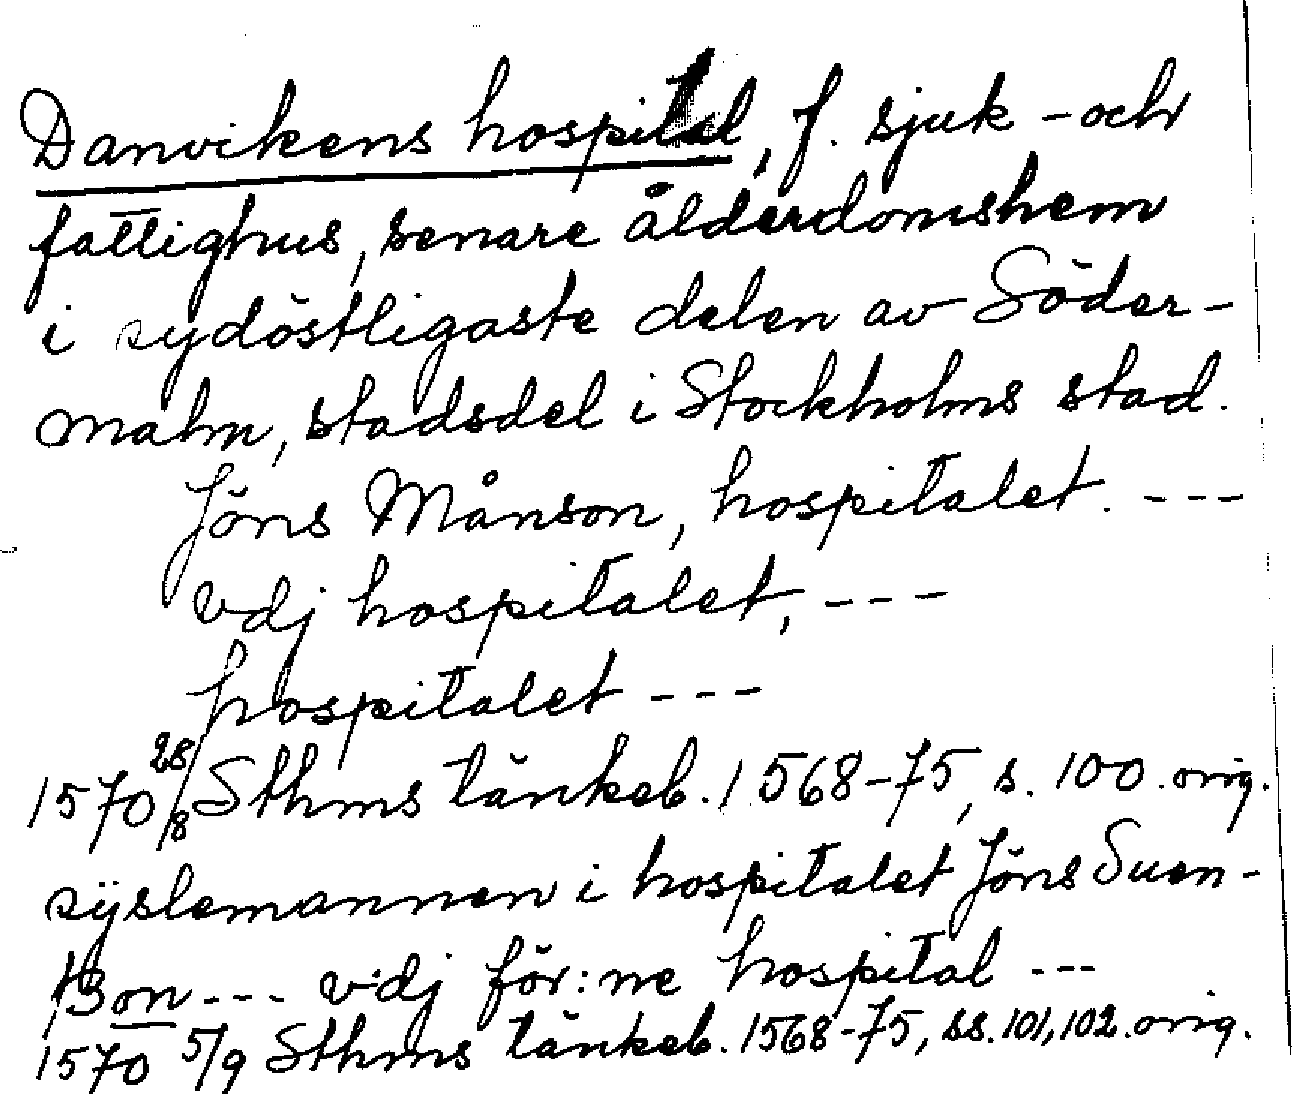 Danvikens hospital, f. sjuk- och
fattighus, senare ålderdomshem
i sydöstligaste delen av Söder-
malm, stadsdel i Stockholms stad.
Jöns Månson, hospitalet. ---
vdj hospitalet, ---
hospitalet ---
1570 28/8 Sthms tänkeb. 1568-75, s. 100. orig.
sÿslemannen i hospitalet Jöns Suen-
ßon --- vdj för:ne hospital ---
1570 5/9 Sthms tänkeb. 1568-75, ss. 101, 102. orig.